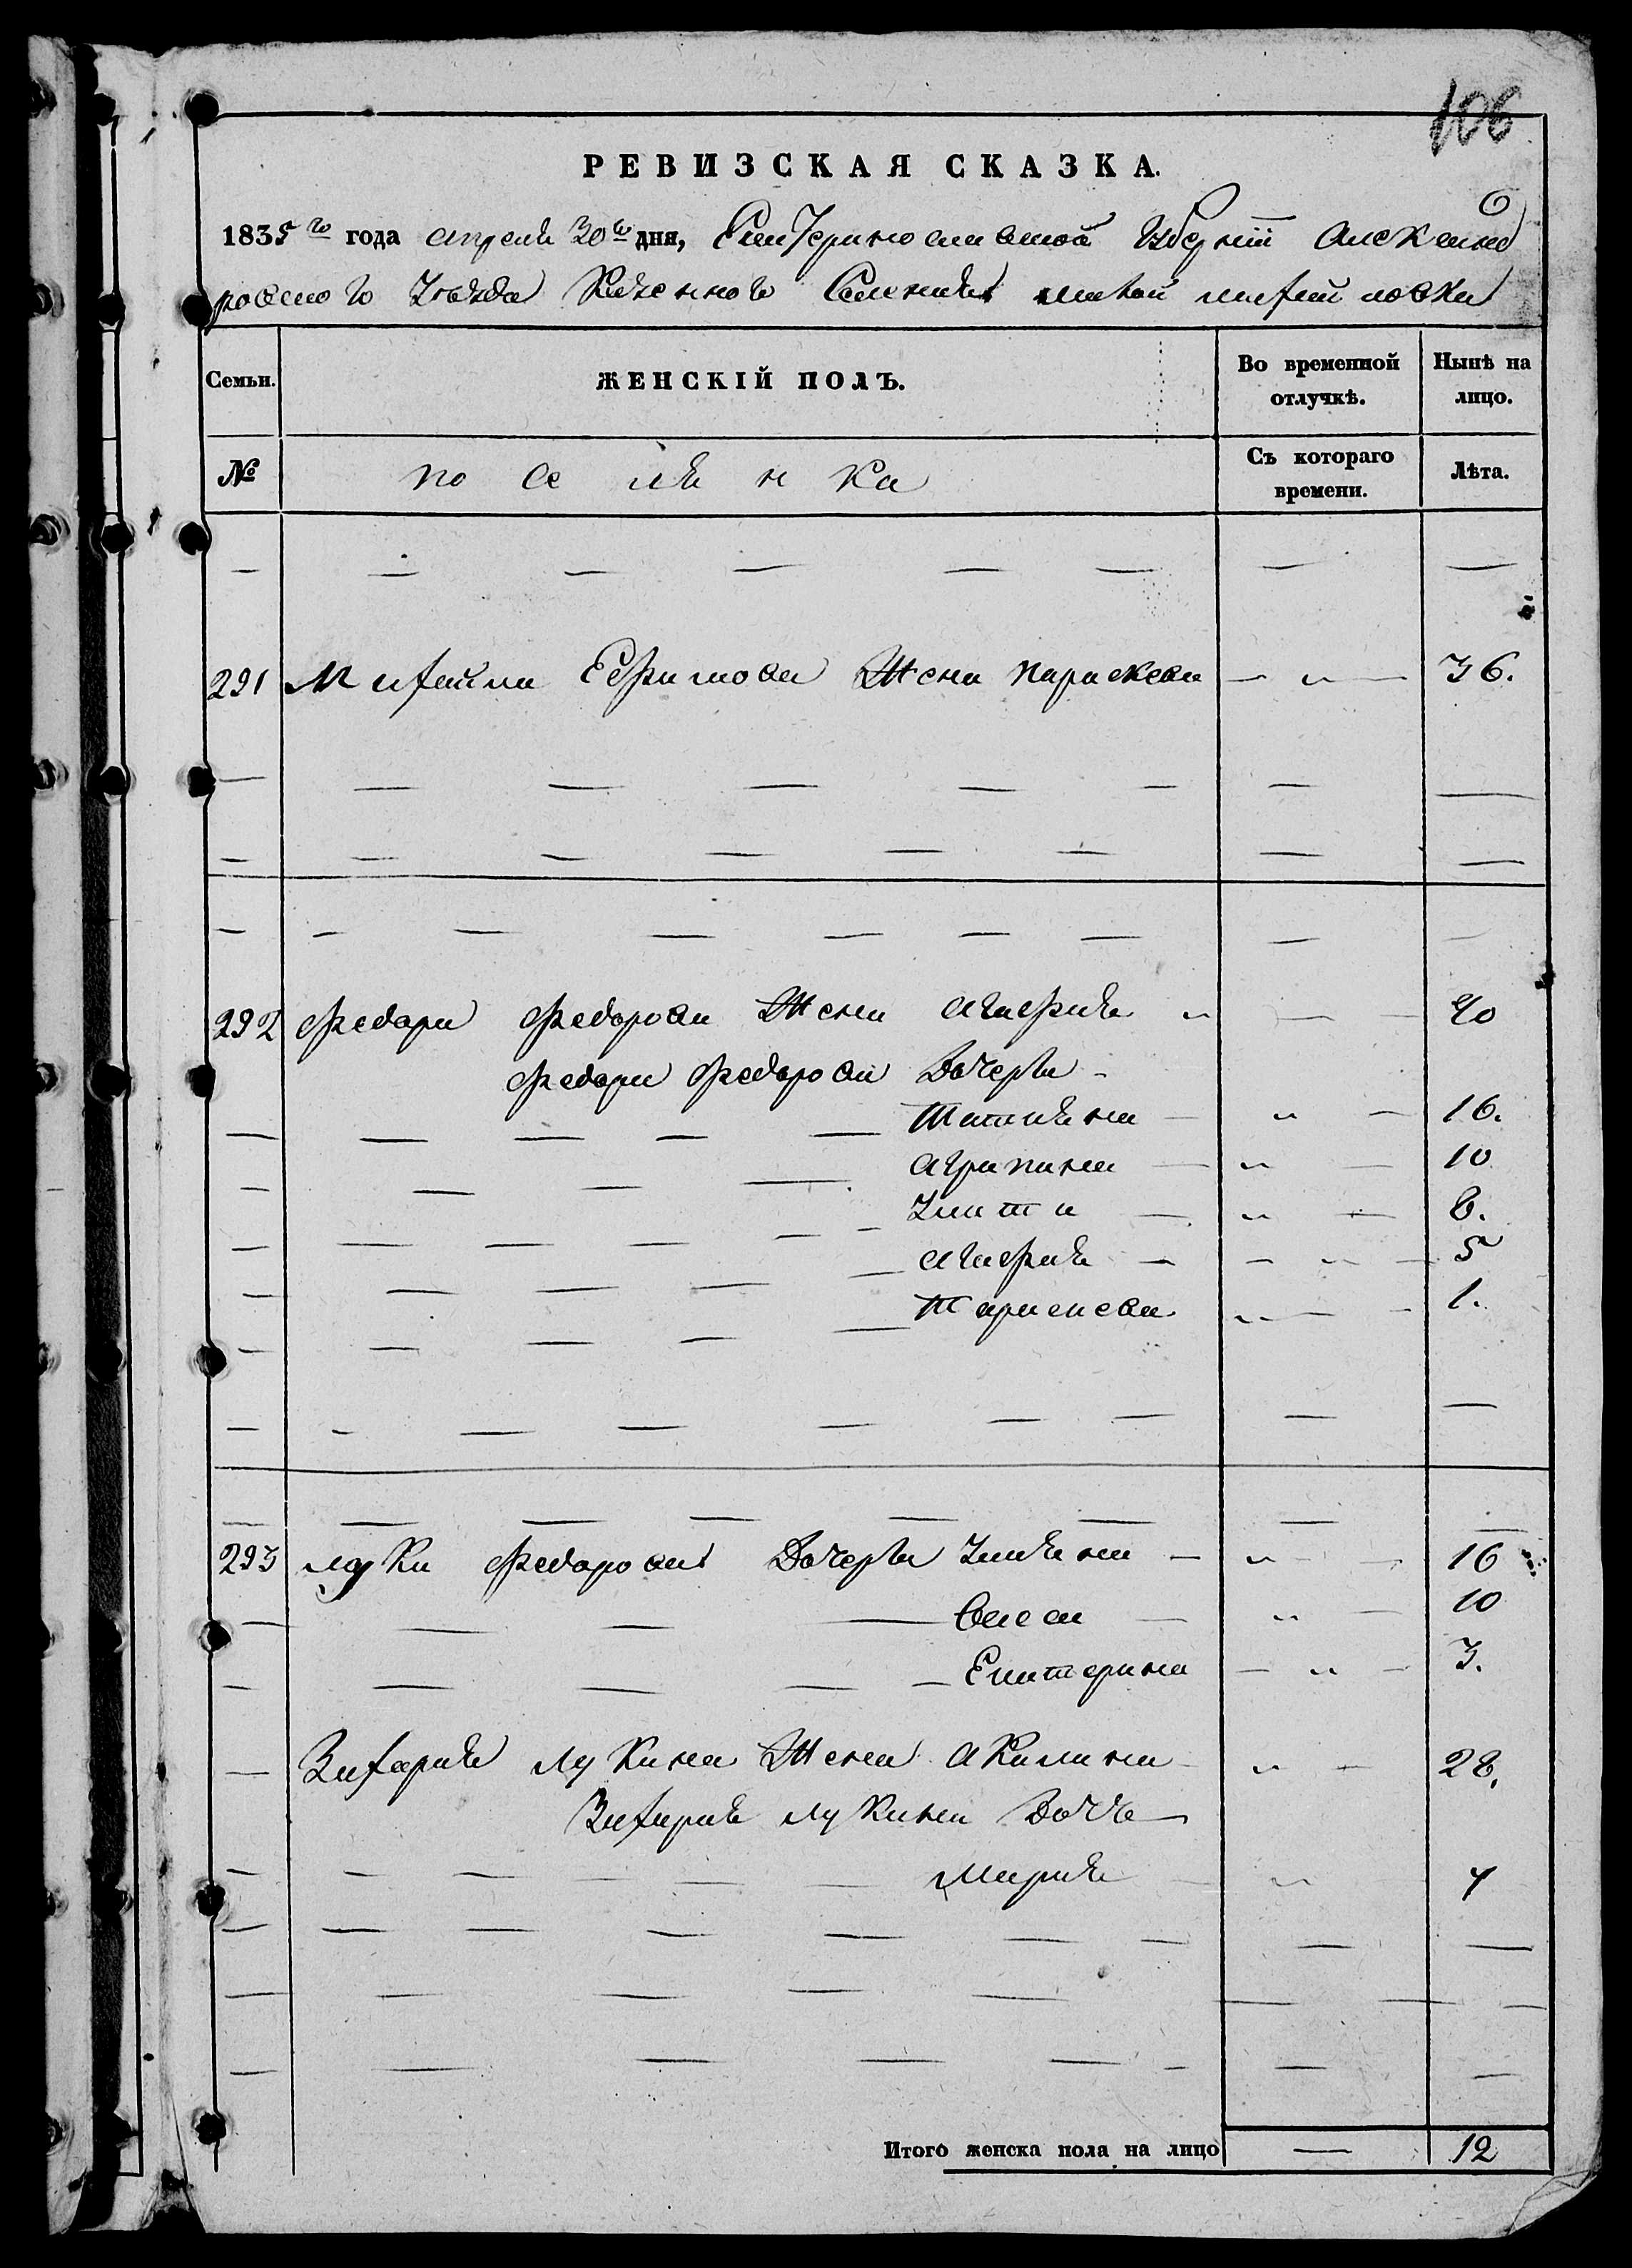 106
РЕВИЗСКАЯ СКАЗКА.
1835 го года апреля 30 го дня, Екатеринославской Губернии Александ
ровского Уезда Казенного Селения малой михайловки
Семьи.
ЖЕНСКІЙ ПОЛЪ.
Во временной отлучкѣ.
Нынѣ на лицо.
№
по се ля н ка
Съ котораго времени.
Лѣта.
291 Михайла Ефимова Жена параскева — „ — 36.
292 Федара Федорова Жена агафия „ — — 40
Федара Федорова Дочери -
Татияна — „ — 16.
агрипина — „ — 10
— „ — 8.
агафия — — „ — 5
Параскева „ — — 1.
293 луки Федарова Дочери Улияна — „ — 16
Васса — „ — 10
Екатерина — „ — 3.
— Захария Лукина Жена акилина — „ — 28.
Захария лукина Дочь —
Мария — „ 4
Итого женска пола на лицо — 12